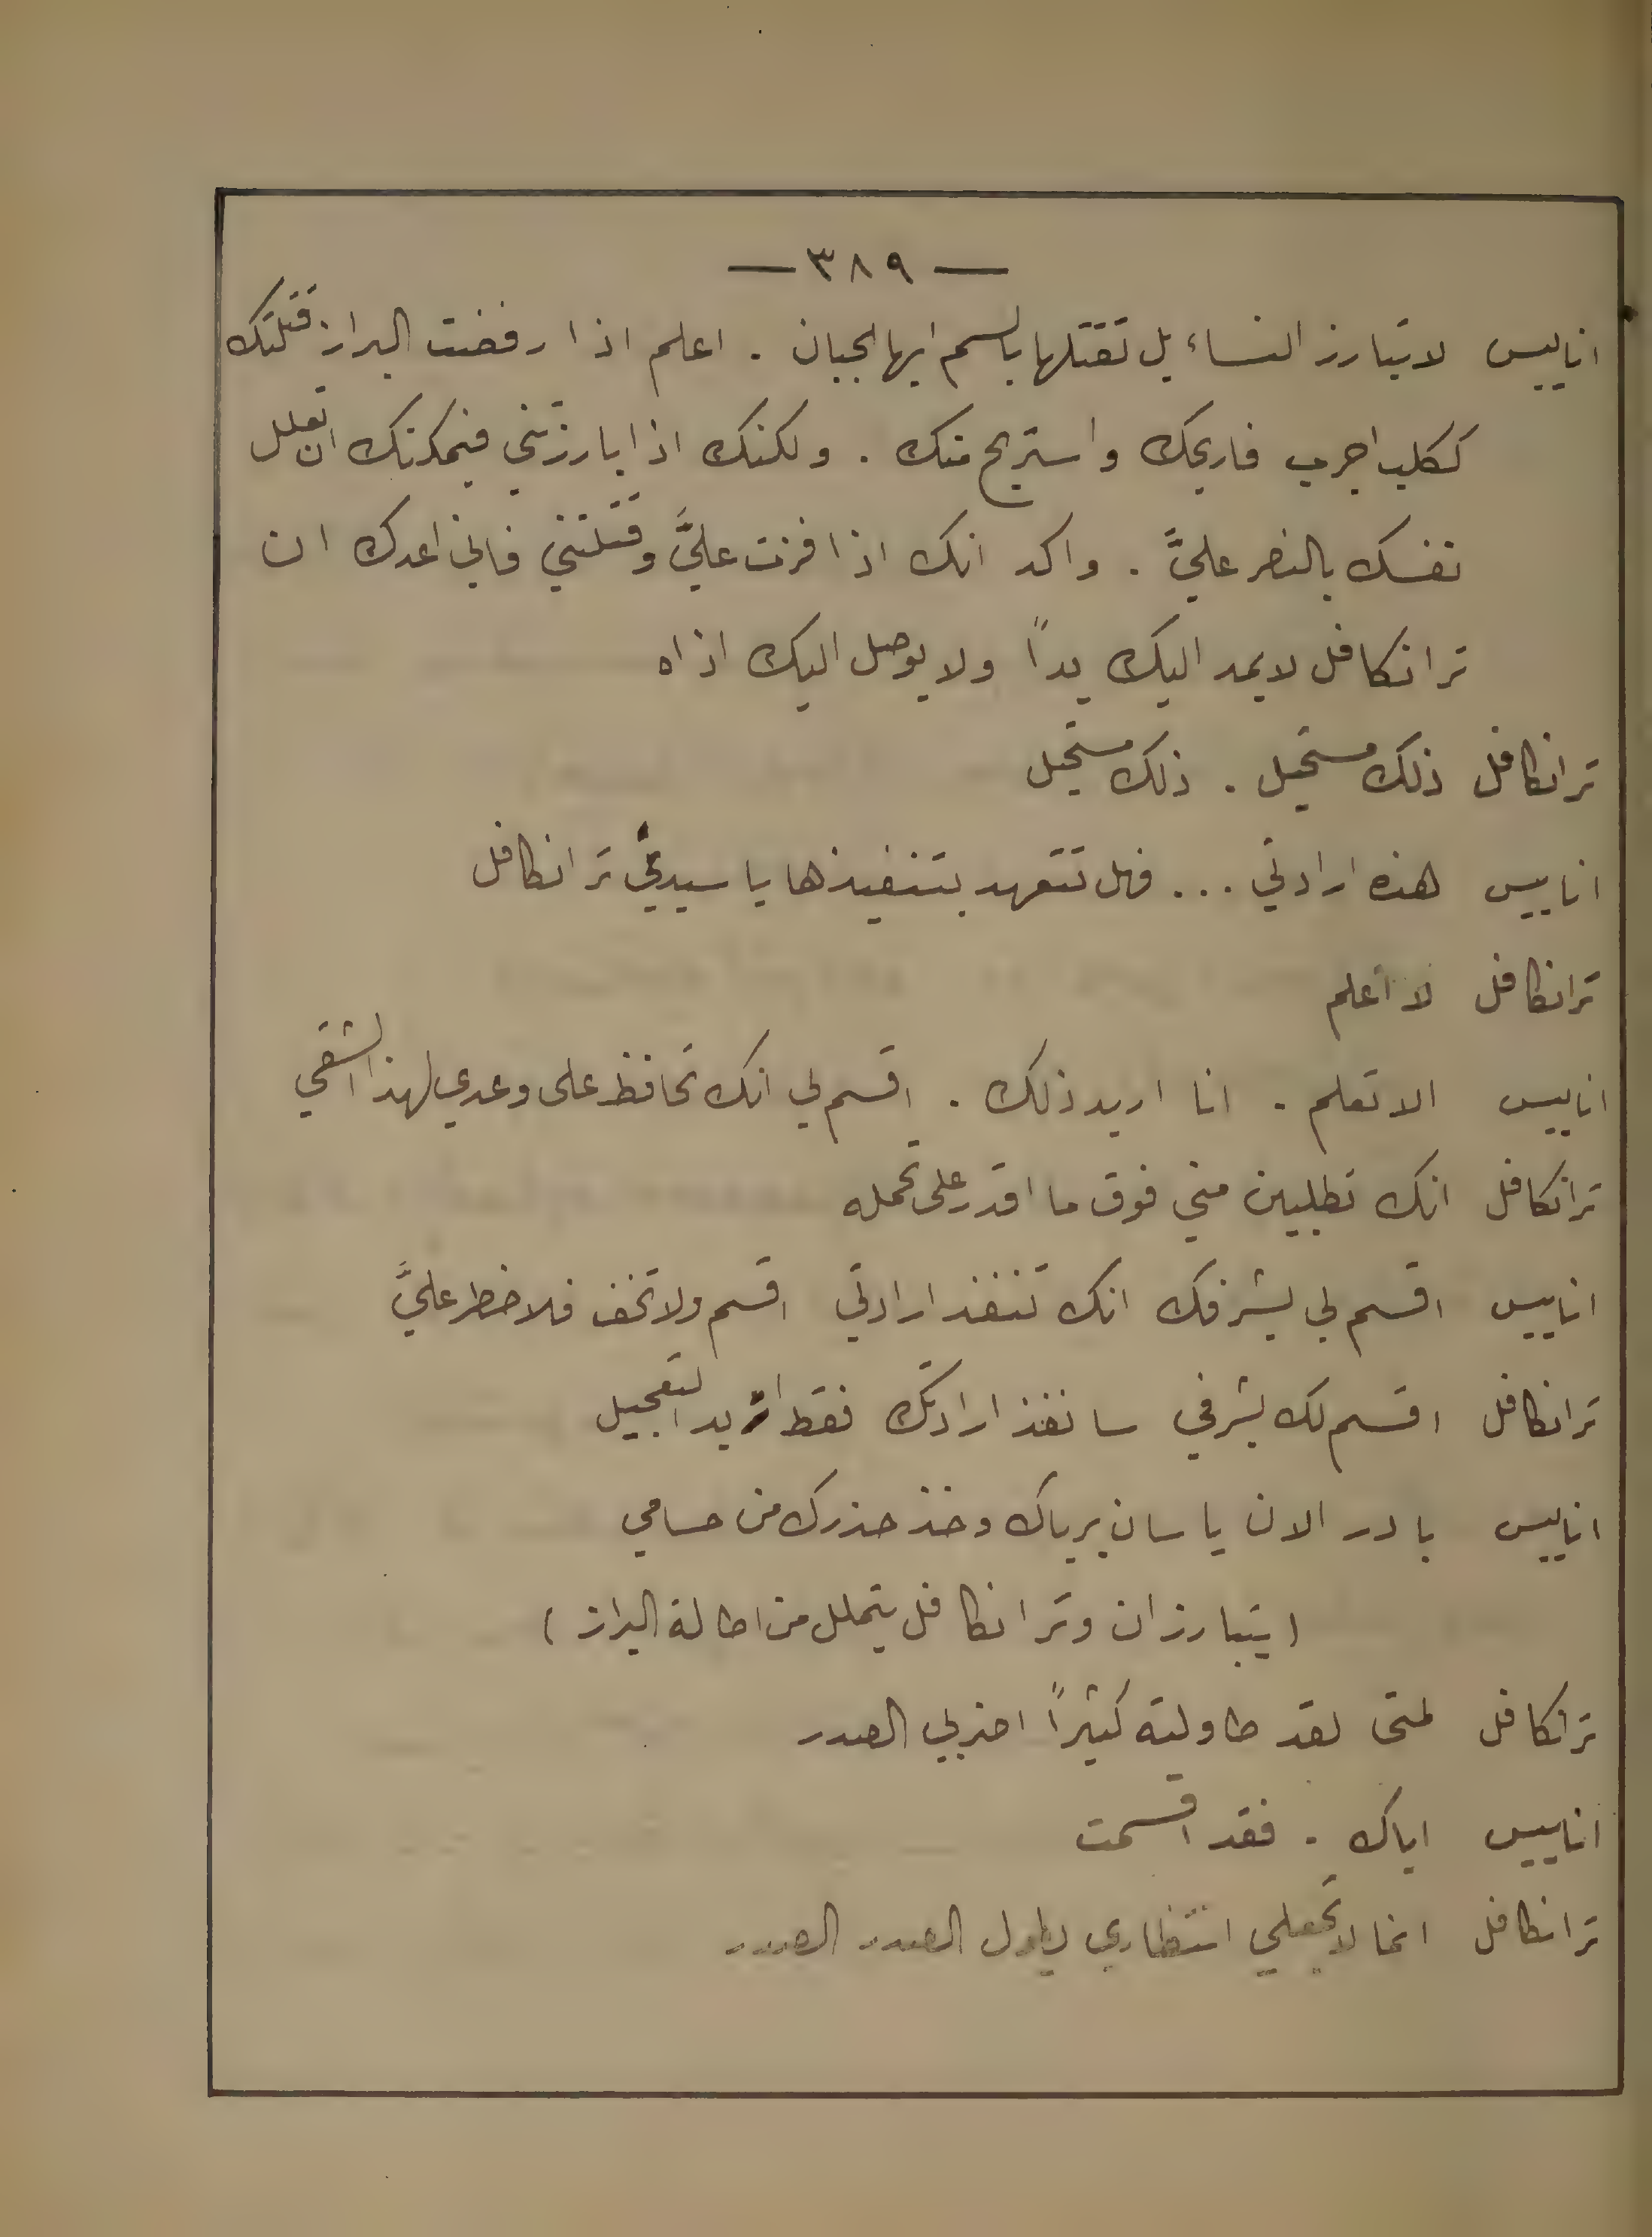 — ٣٨٩ —
اناييس لا تبارز النساء بل تقتلها بالسم ايها الجبان . اعلم اذا رفضت البراز قتلتك
ككلب اجرب فاريحك واستريح منك . ولكنك اذا بارزتني فيمكنك ان تعلل
نفسك بالنصر عليَّ . واكد انك اذا فزت عليَّ وقتلتني فاني اعدك ان
ترانكافل لا يمد اليك يداً ولا يوصل اليك اذاه
ترانكافل ذلك مستحيل . ذلك مستحيل
اناييس هذه ارادتي ... فهل تتعهد بتنفيذها يا سيدي ترانكافل
ترانكافل لا اعلم
اناييس الا تعلم . انا اريد ذلك . اقسم لي انك تحافظ على وعدي لهذا الشقي
ترانكافل انك تطلبين مني فوق ما اقدر على تحمله
اناييس اقسم لي بشرفك انك تنفذ ارادتي اقسم ولا تخف فلا خطر عليَّ
ترانكافل اقسم لك بشرفي سانفذ ارادتك فقط اريد التعجيل
اناييس بادر الان يا سان برياك وخذ حذرك من حسامي
( يتبارزان وترانكافل يتململ من اطالة البراز )
ترانكافل لمتى لقد طاولته كثيراً اضربي الصدر
اناييس اياك . فقد اقسمت
ترانكافل انما لا تجعلي انتظاري يطول الصدر الصدر